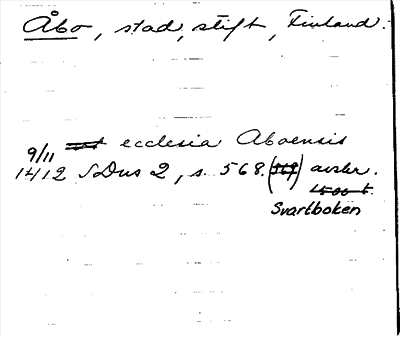 Åbo, stad, stift, Finland.
ecclesia Aboensis
9/11
1412 SDns 2, s. 568. (569) avskr.
Svartboken